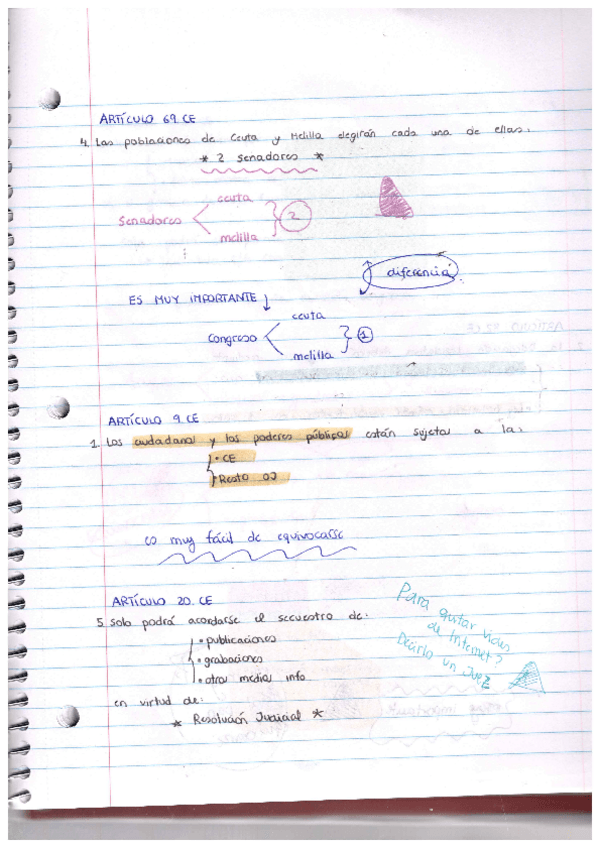 ARTÍCULO 69 CE
4. Las poblaciones de Ceuta y Melilla elegirán cada una de ellas:
* 2 senadores *
Senadores
ceuta
melilla
2
diferencia
ES MUY IMPORTANTE ↓
Congreso
ceuta
melilla
1
ARTÍCULO 9 CE
1. Los ciudadanos y los poderes públicos están sujetos a la:
• CE
• Resto OJ
es muy fácil de equivocarse
ARTÍCULO 20 CE
5. Solo podrá acordarse el secuestro de:
• publicaciones
• grabaciones
• otros medios info
en virtud de:
* Resolución Judicial *
Para quitar
de Internet?
Decirlo un Juez